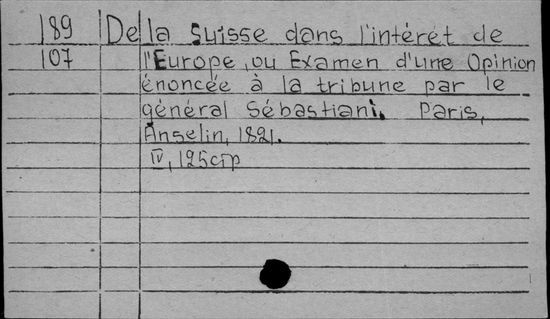 189 De la Suisse dans l'intérét de
107 l'Europe, ou Examen d'une Opinion
énoncée à la tribune par le
général Sébastiani. Paris,
Anselin, 1821.
IV, 125 стр